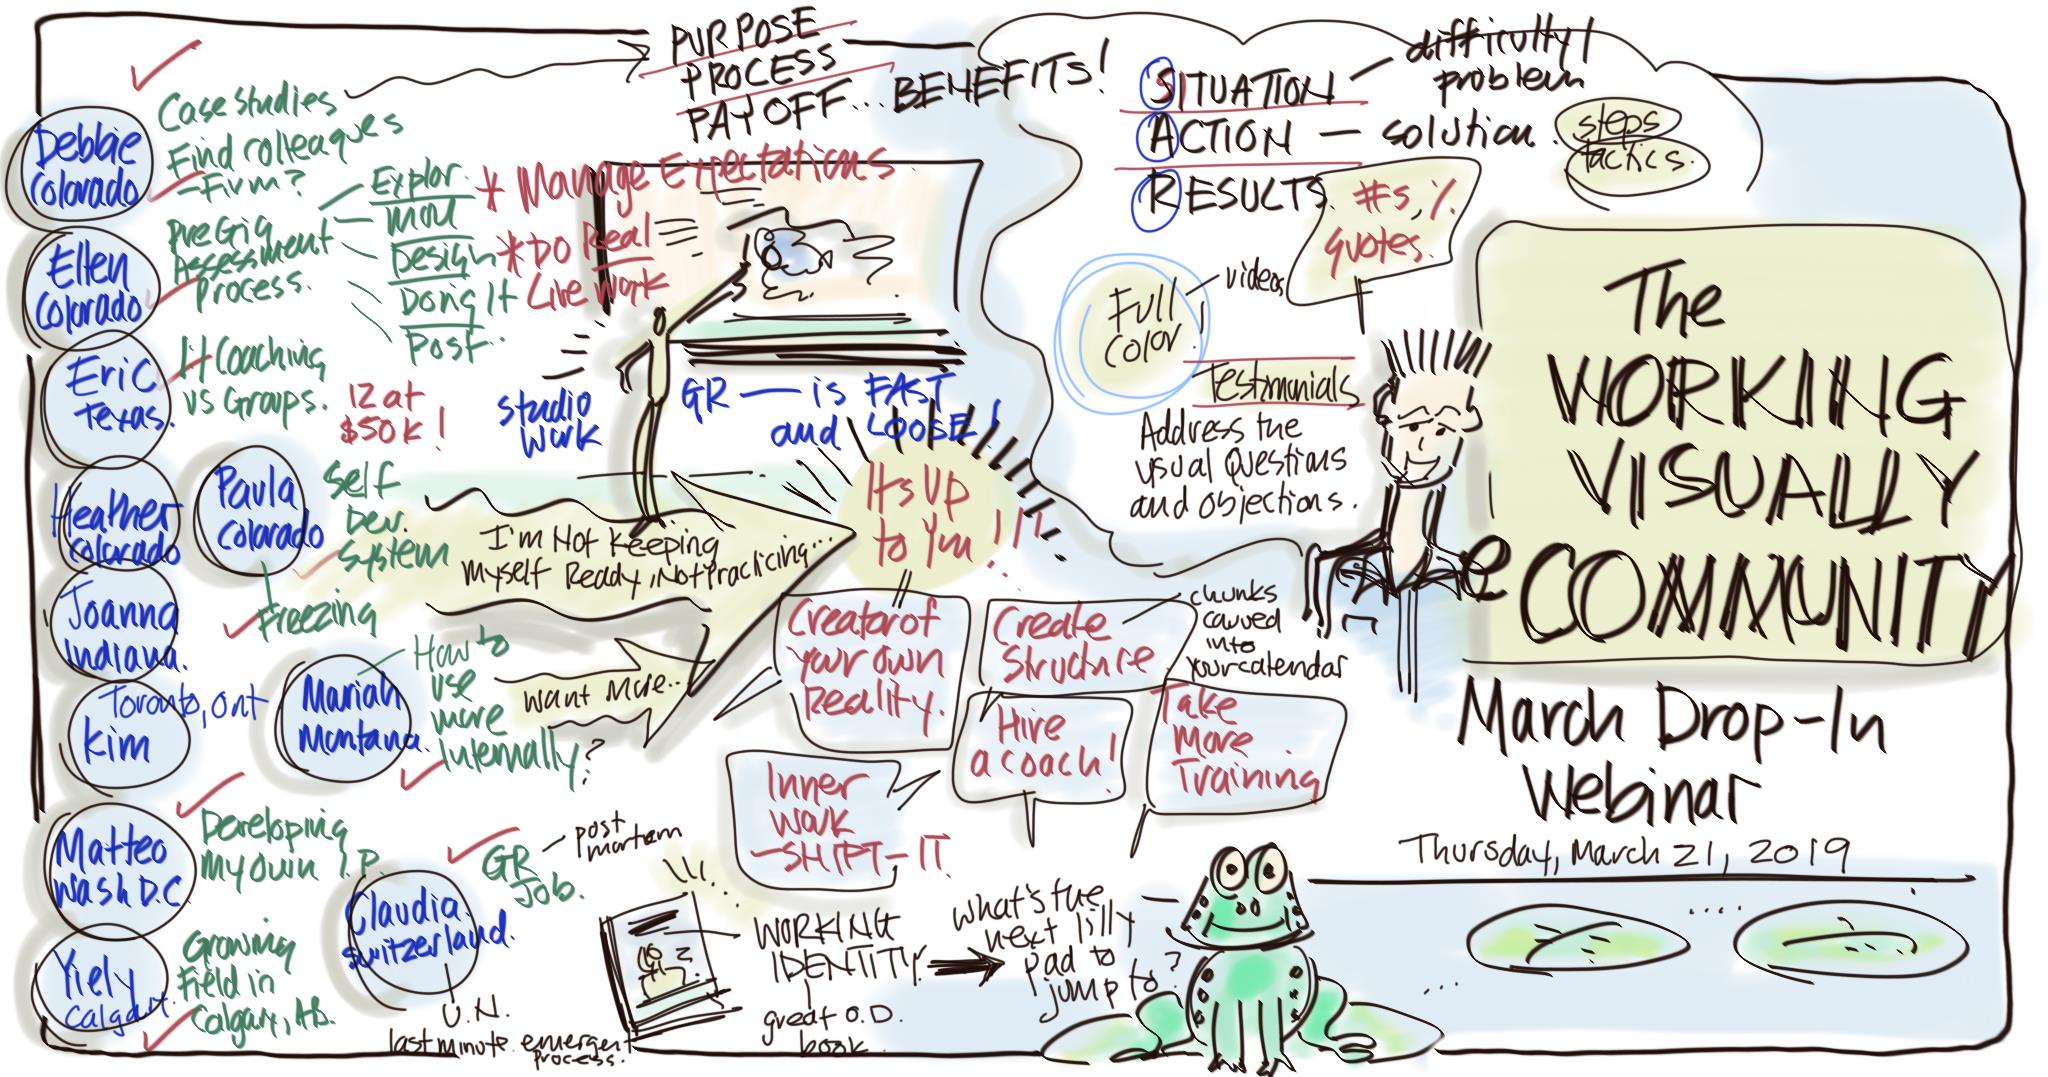 PURPOSE
PROCESS
PAYOFF... BENEFITS!
SITUATION — difficulty/
problem
ACTION — solution.
steps
tactics.
RESULTS.
#s, %
quotes.
Full
color.
videos
Testimonials
Address the
usual questions
and objections.
The
WORKING
VISUALLY
eCOMMUNITY
March Drop-In
Webinar
Thursday, March 21, 2019
Debbie
Colorado
Case Studies
Find colleagues
- Firm?
Ellen
Colorado
Pre Gig
Assessment
Process.
Explor.
MOU
Design
Doing It
Post..
* Manage Expectations
* Do Real
Live Work
Eric
Texas.
1-1 Coaching
vs Groups.
12 at
$50k!
studio
work
GR — is FAST
and LOOSE!
Heather
Colorado
Paula
Colorado
Self
Dev.
System
Freezing
I'm Not Keeping
Myself Ready, Not Practicing...
It's Up
to You!!!
Joanna
Indiana.
Kim
Toronto, Ont
Mariah
Montana.
How to
use
more
Internally?
Want More..
Creator of
your own
Reality.
Create
Structure
chunks
carved
into
your calendar
Hire
a coach!
Take
More
Training
Inner
Work
- SHIFT-IT
Matteo
Wash D.C.
Developing
My own I.P.
Claudia.
Switzerland.
GR
Job.
post
mortem
U.N.
last minute. emergent
process.
Yiely
Calgary
Growing
Field in
Calgary, Ab.
WORKING
IDENTITY
great O.D.
book
What's the
next lilly
pad to
jump to?